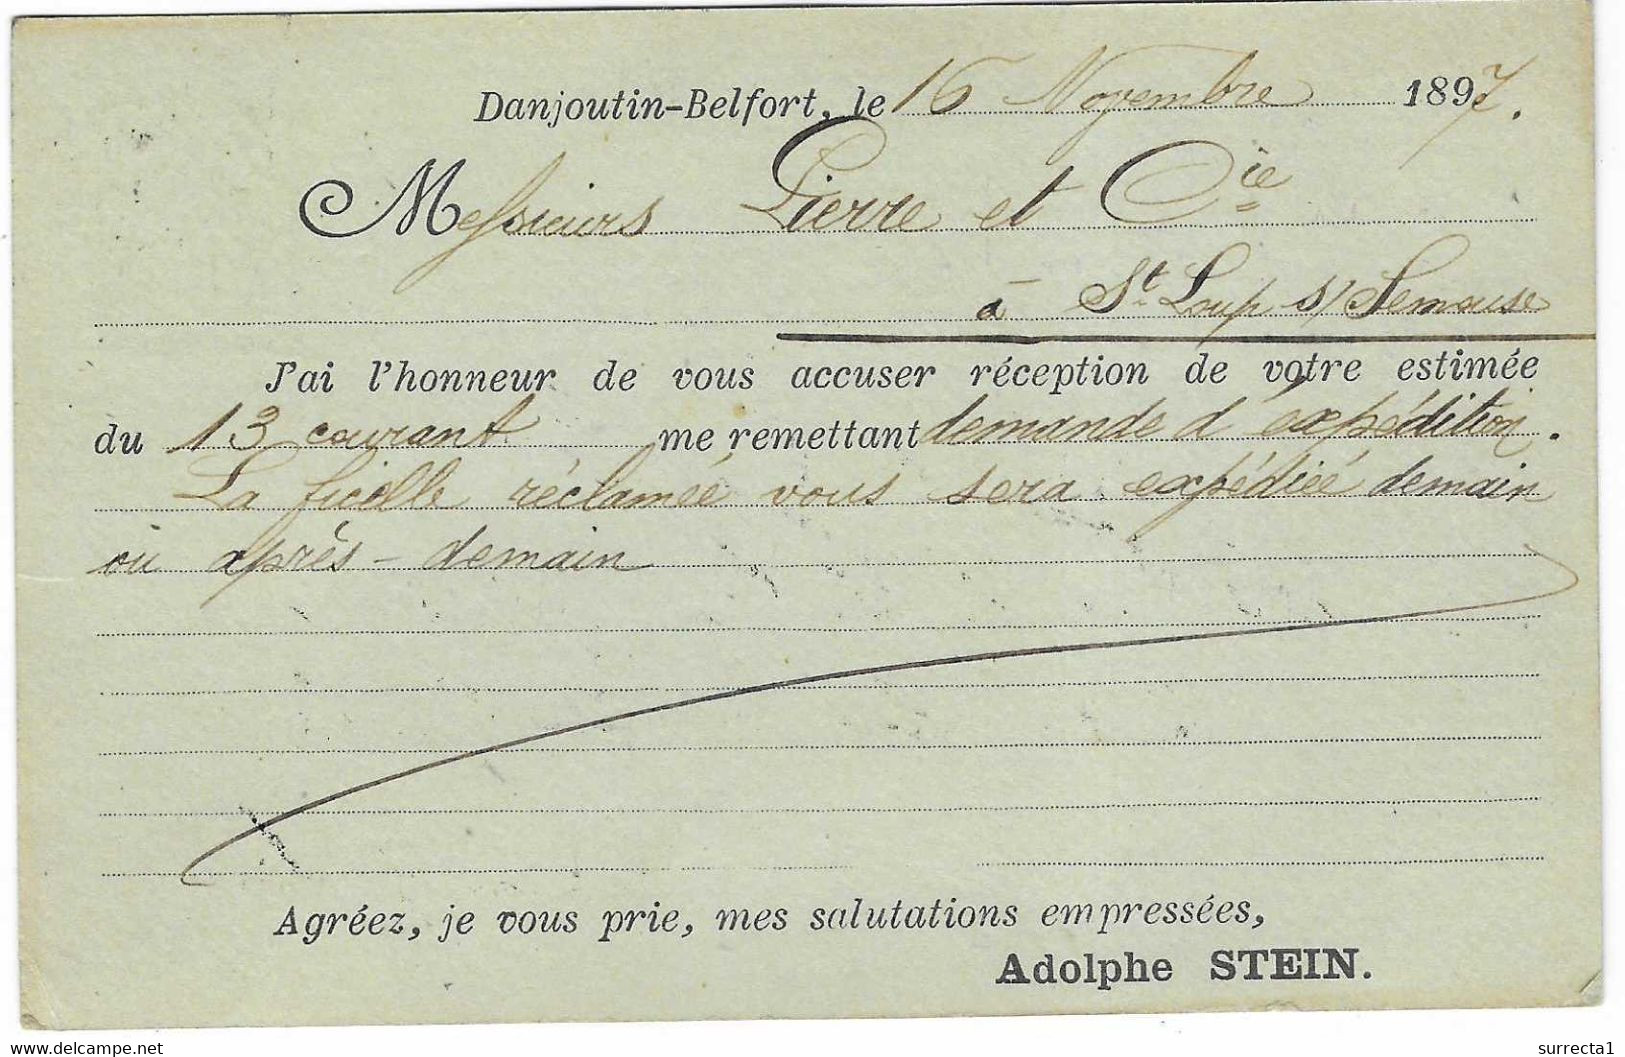 Danjoutin-Belfort, le 16 Novembre 1897.
Messieurs Pierre et Cie
à St Loup s/ Semouse
J'ai l'honneur de vous accuser réception de votre estimée
du 13 courant me remettant demande d'expédition.
La ficelle réclamée vous sera expédiée demain
ou après-demain
Agréez, je vous prie, mes salutations empressées,
Adolphe STEIN.
https://www.delcampe.net/
surrecta1